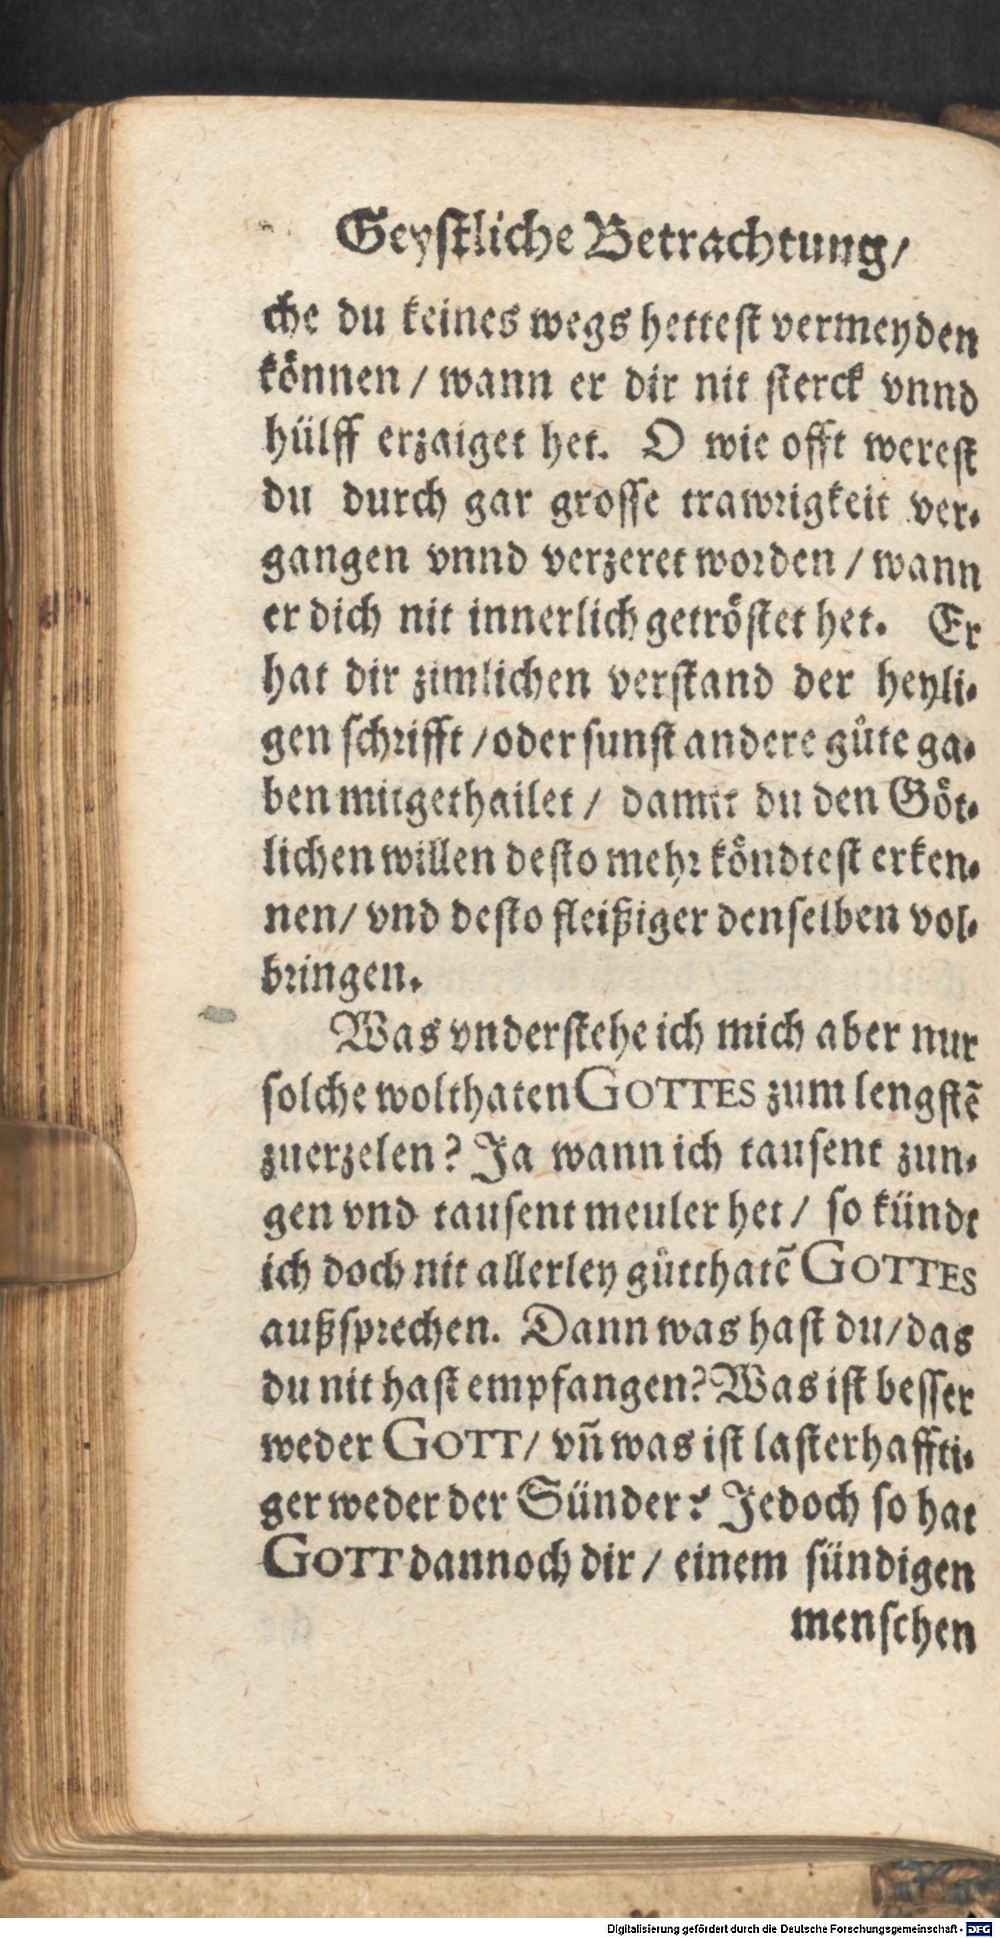 Geyſtliche Betrachtung/
che du keines wegs hetteſt vermeyden
koͤnnen / wann er dir nit ſterck vnnd
huͤlff erzaiget het. O wie offt wereſt
du durch gar groſſe trawrigkeit ver-
gangen vnnd verzeret worden / wann
er dich nit innerlich getroͤſtet het. Er
hat dir zimlichen verſtand der heyli-
gen ſchrifft / oder ſunſt andere guͦte ga-
ben mitgethailet / damit du den Goͤt-
lichen willen deſto mehr koͤndteſt erken-
nen/ vnd deſto fleißiger denſelben vol-
bringen.
Was vnderſtehe ich mich aber nur
ſolche wolthaten GOTTES zum lengſtẽ
zuerzelen? Ja wann ich tauſent zun-
gen vnd tauſent meuler het / ſo kuͤndt
ich doch nit allerley guͦtthatẽ GOTTES
außſprechen. Dann was haſt du/das
du nit haſt empfangen? Was iſt beſſer
weder GOTT/ vñ was iſt laſterhaffti-
ger weder der Suͤnder? Jedoch ſo hat
GOTT dannoch dir / einem ſuͤndigen
menſchen
Digitalisierung gefördert durch die Deutsche Forschungsgemeinschaft - DFG